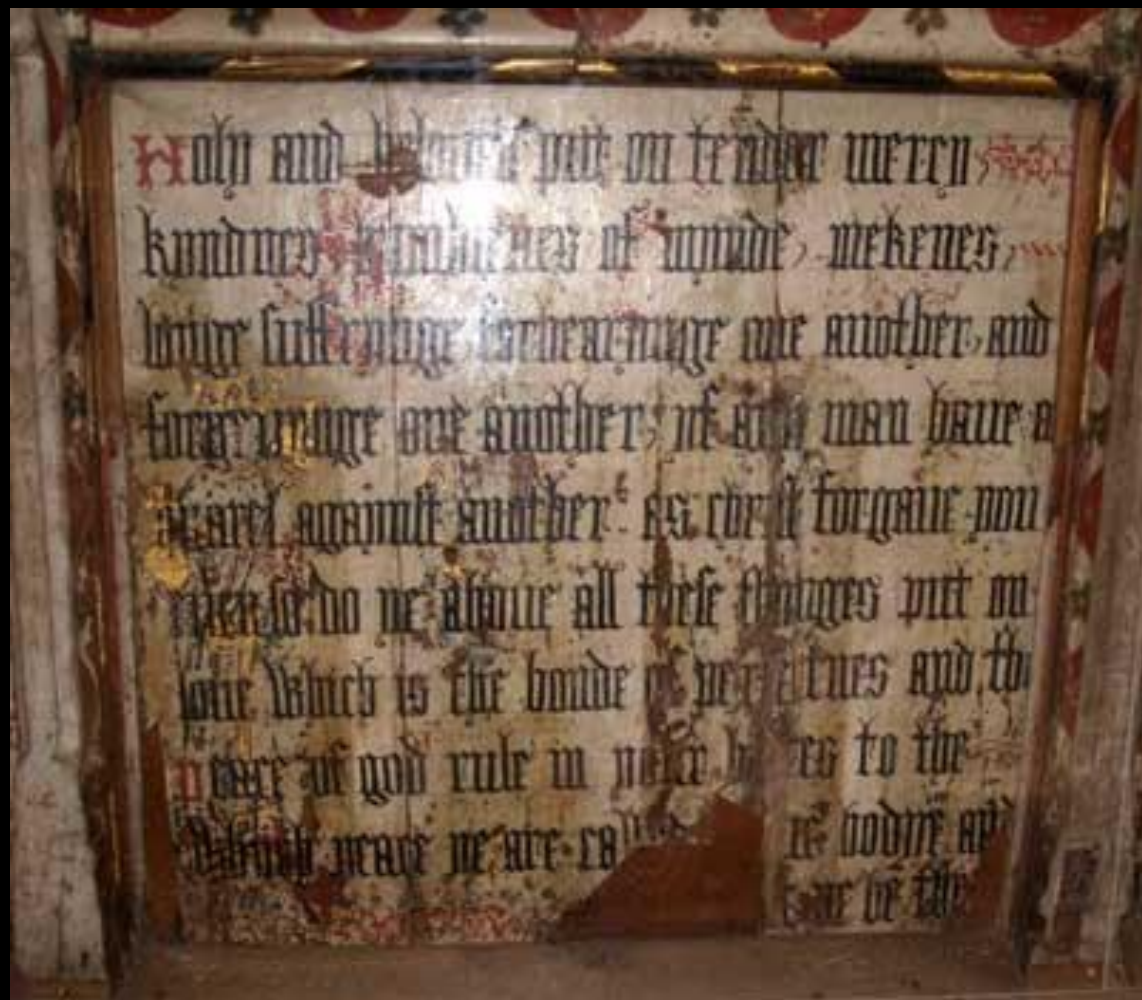 Holy and beloued put on tendar mercy
kyndnes humblenes of mynde, mekenes,
longe suffrynge forbearynge one another, and
forgevynge one another, yf any man haue a
quarel agaynst another: as christ forgaue you
euen so do ye aboue all these thynges put on
loue which is the bonde of perfectnes and the
peace of god rule in your hertes to the
which peace ye are called bodye and
be the